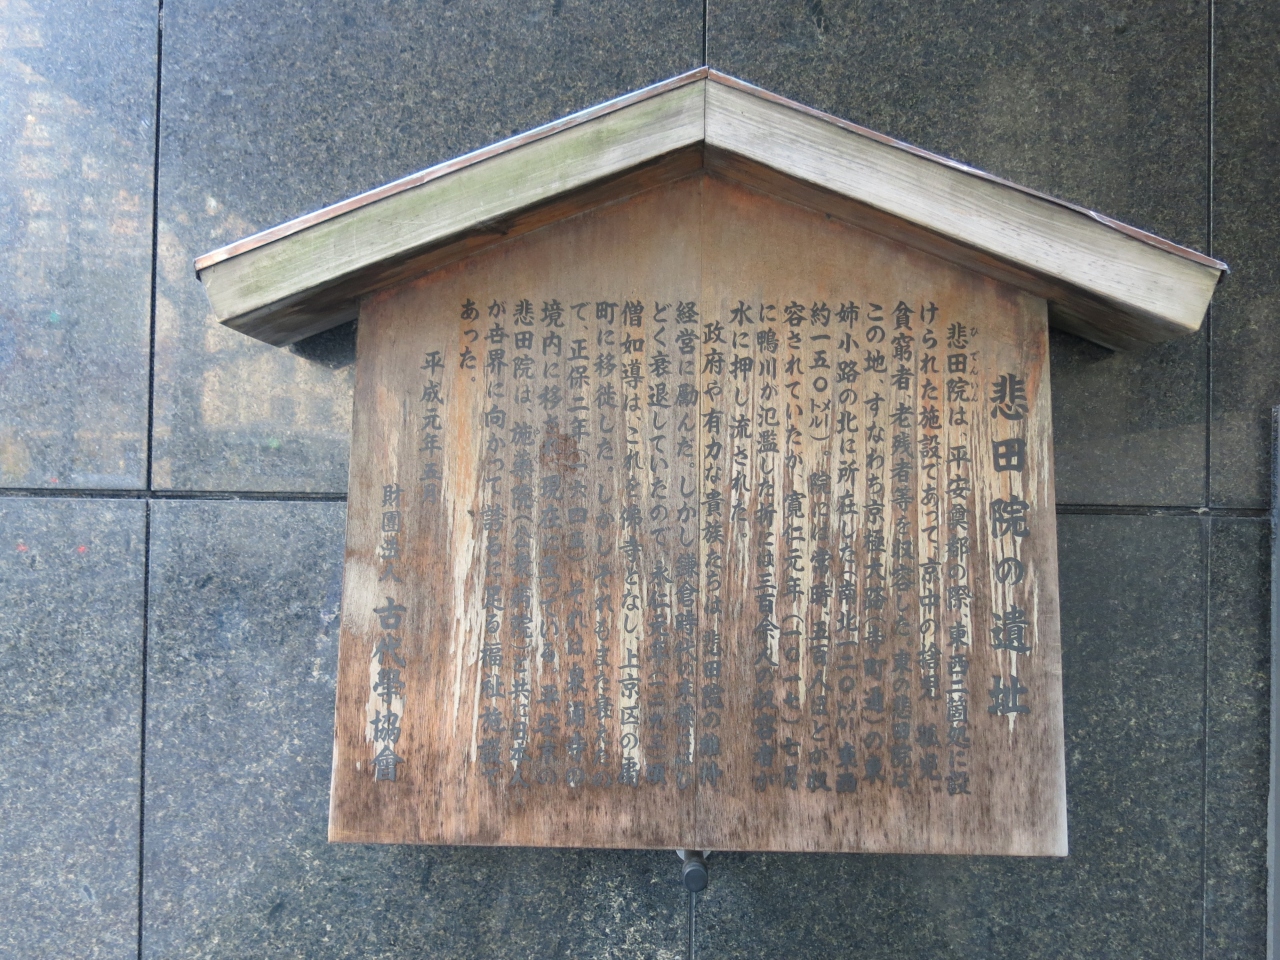 悲田院の遺址
悲田院は、平安奠都の際、東西二箇処に設
ひでんいん
けられた施設であって、京中の
貧窮者、老残者等を収容した。東の悲田院は、
この地、すなわち京極大路(寺町通)の東
姉小路の北に所在した(南北一二〇㍍、東西
約一五〇㍍)。院には常時、五百人ほどが収
容されていたが、寛仁元年(一〇一七)七月
に鴨川が氾濫した折には三百余人の収容者が
水に押し流された。
政府や有力な貴族たちは、悲田院の維持
経営に励んだ。しかし鎌倉時代
どく衰退していたので、永仁
僧如導は、これを佛寺となし、上京区の
町に移徙した。しかしそれもまた衰え
て、正保二年(一六四五)、それは泉涌寺の
境内に移され現在に至っている。平安京の
悲田院は、施薬院
が世界に向かって誇るに足る福祉施設で
あった。
平成元年五月
財團法人 古代學協會